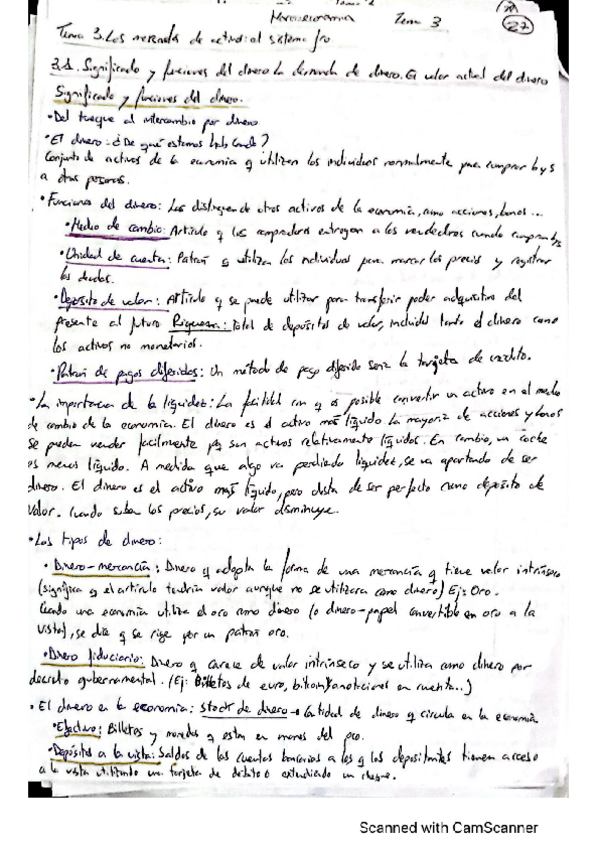 Macroeconomía Tema 3
27
Tema 3. Los mercados de activos: el sistema fro
3.1. Significado y funciones del dinero. La demanda de dinero. El valor actual del dinero
Significado y funciones del dinero.
• Del trueque al intercambio por dinero
• El dinero: ¿De qué estamos hablando?
Conjunto de activos de la economía q utilizan los individuos normalmente para comprar b y s
a otras personas.
• Funciones del dinero: Las distinguen de otros activos de la economía, como acciones, bonos...
• Medio de cambio: Artículo q los compradores entregan a los vendedores cuando compran bys
• Unidad de cuenta: Patrón q utilizan los individuos para marcar los precios y registrar
las deudas.
• Depósito de valor: Artículo q se puede utilizar para transferir poder adquisitivo del
presente al futuro Riqueza: total de depósitos de valor, incluidos tanto el dinero como
los activos no monetarios.
• Patrón de pagos diferidos: Un método de pago diferido sería la tarjeta de crédito.
• La importancia de la liquidez: La facilidad con q es posible convertir un activo en el medio
de cambio de la economía. El dinero es el activo más líquido La mayoría de acciones y bonos
se pueden vender fácilmente pq son activos relativamente líquidos. En cambio, un coche
es menos líquido. A medida que algo va perdiendo liquidez, se va apartando de ser
dinero. El dinero es el activo más líquido, pero dista de ser perfecto como depósito de
valor. Cuando suben los precios, su valor disminuye.
• Los tipos de dinero:
• Dinero-mercancía: Dinero q adopta la forma de una mercancía q tiene valor intrínseco
(significa q el artículo tendría valor aunque no se utilizara como dinero) Ej: Oro.
Cuando una economía utiliza el oro como dinero (o dinero-papel convertible en oro a la
vista), se dice q se rige por un patrón oro.
• Dinero fiduciario: Dinero q carece de valor intrínseco y se utiliza como dinero por
decreto gubernamental. (Ej: Billetes de euro, bitcoin, anotaciones en cuenta...)
• El dinero en la economía: Stock de dinero → Cantidad de dinero q circula en la economía
• Efectivo: Billetes y monedas q están en manos del pco.
• Depósitos a la vista: Saldos de las cuentas bancarias a los q los depositantes tienen acceso
a la vista utilizando una tarjeta de débito o extendiendo un cheque.
Scanned with CamScanner